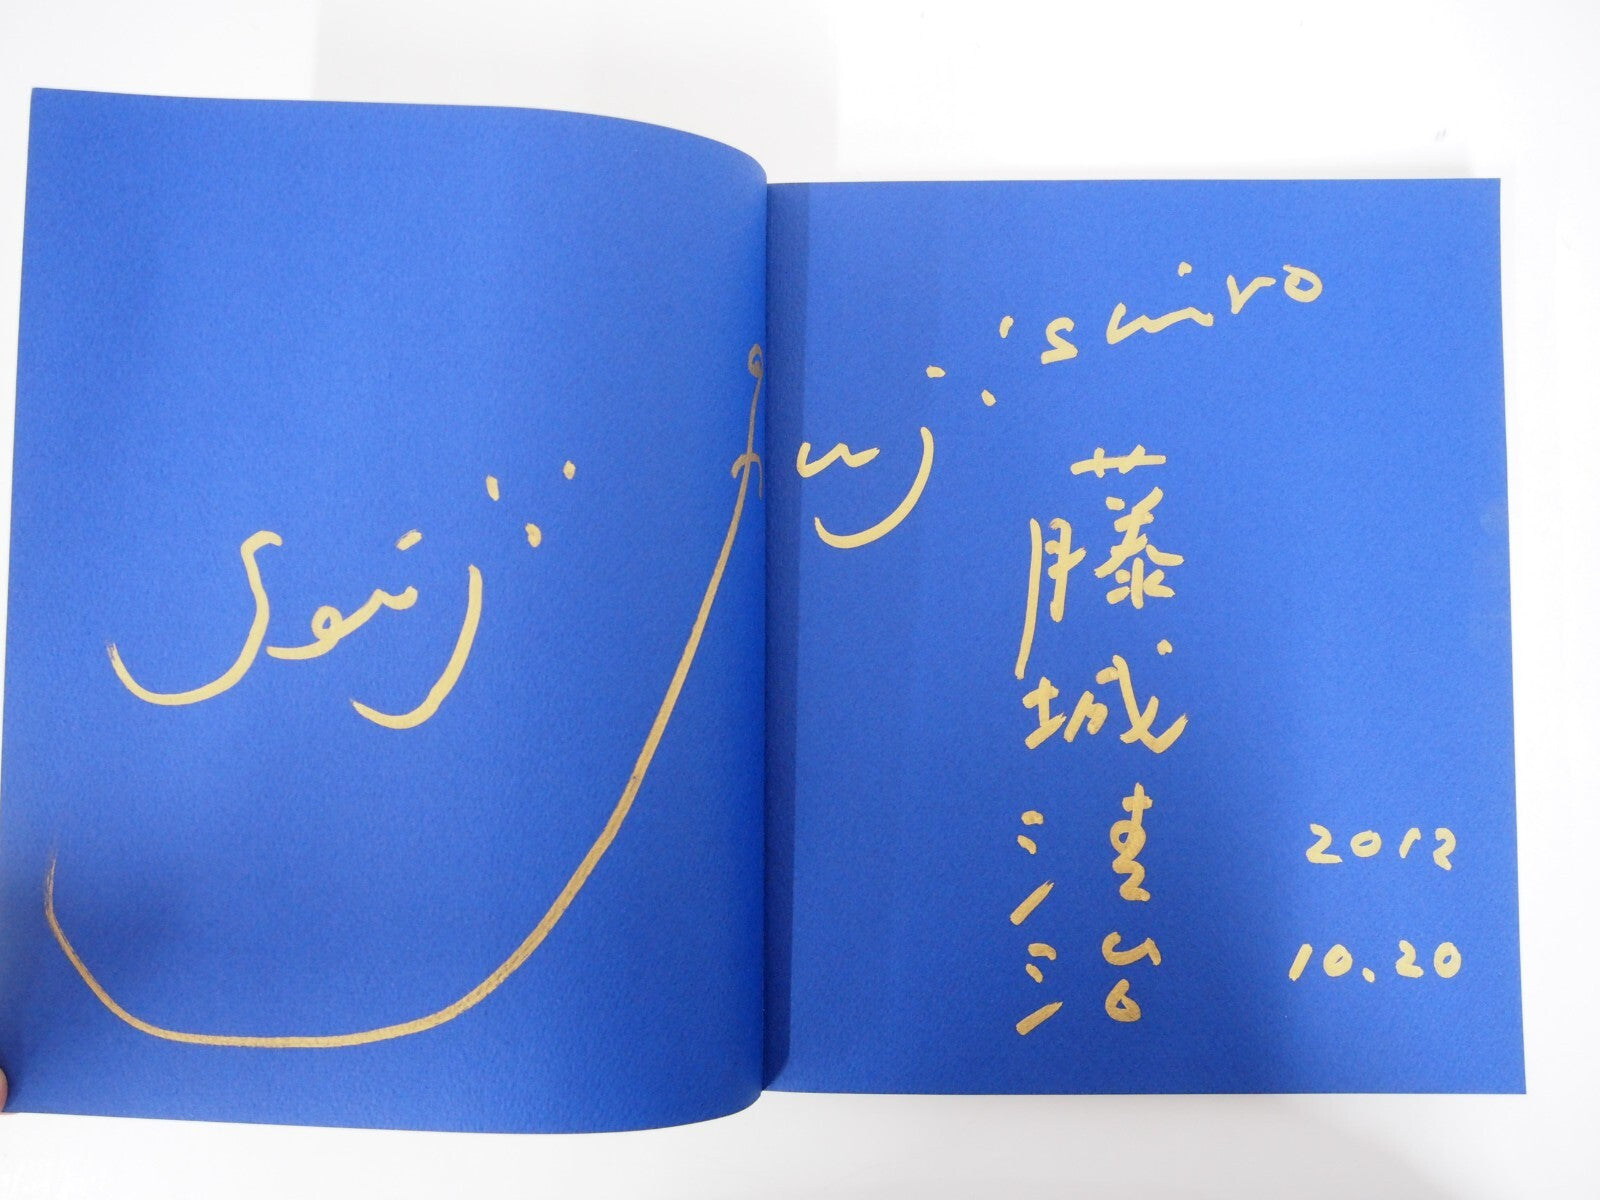 Seiji Fujishiro
藤城
清治
2012
10.20